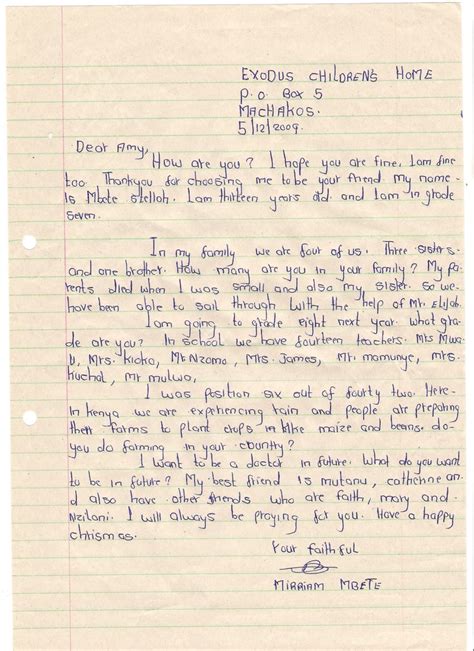 EXODUS CHILDREN'S HOME
P.O BOX 5
MACHAKOS.
5/12/2009.
Dear Amy,
How are you? I hope you are fine, I am fine
too. Thankyou for choosing me to be your friend. My name
is Mbete stellah. I am thirteen years old. and I am in grade
seven.
In my family we are four of us. Three sisters
and one brother. How many are you in your family? My pa
rents died when I was small and also my sister. So we-
have been able to sail through with the help of Mr. Elijah.
I am going to grade eight next year. what gra-
de are you? In school we have fourteen teachers. Mrs Mwa-
U, Mrs. Kioko, Mr. Nzomo, Mrs. James, Mr. mamunye, mrs.
Kuchal, mr mulwa,
I was position six out of fourty two. Here-
in Kenya we are experiencing rain and people are preparing
their farms to plant crops in like maize and beans. do-
you do farming in your country?
I want to be a doctor in future. What do you want
to be in future? My best friend is mutanu, catherine an
d also have other friends who are faith, mary and-
Nzilani. I will always be praying for you. Have a happy
chrismas.
Your faithful
MIRRIAM MBETE